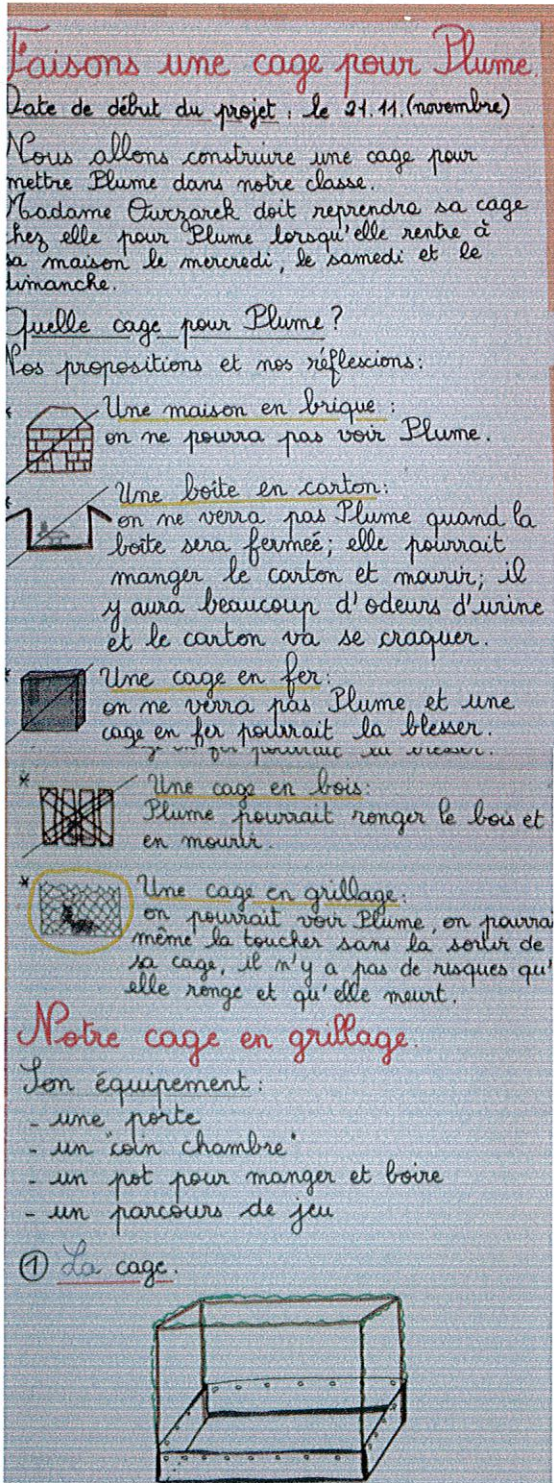 Faisons une cage pour Plume.
Date de début du projet : le 21.11.(novembre)
Nous allons construire une cage pour
mettre Plume dans notre classe.
Madame Ourzarek doit reprendre sa cage
chez elle pour Plume lorsqu'elle rentre à
sa maison le mercredi, le samedi et le
dimanche.
Quelle cage pour Plume ?
Nos propositions et nos réflescions :
* Une maison en brique :
on ne pourra pas voir Plume.
* Une boîte en carton :
on ne verra pas Plume quand la
boîte sera fermeé ; elle pourrait
manger le carton et mourir ; il
y aura beaucoup d'odeurs d'urine
et le carton va se craquer.
* Une cage en fer :
on ne verra pas Plume et une
cage en fer pourrait la blesser.
cage en fer pourrait la blesser.
* Une cage en bois :
Plume pourrait ronger le bois et
en mourir.
* Une cage en grillage :
on pourrait voir Plume, on pourra
même la toucher sans la sortir de
sa cage, il n'y a pas de risques qu'
elle ronge et qu'elle meurt.
Notre cage en grillage.
Son équipement :
- une porte
- un "coin chambre"
- un pot pour manger et boire
- un parcours de jeu
① La cage.